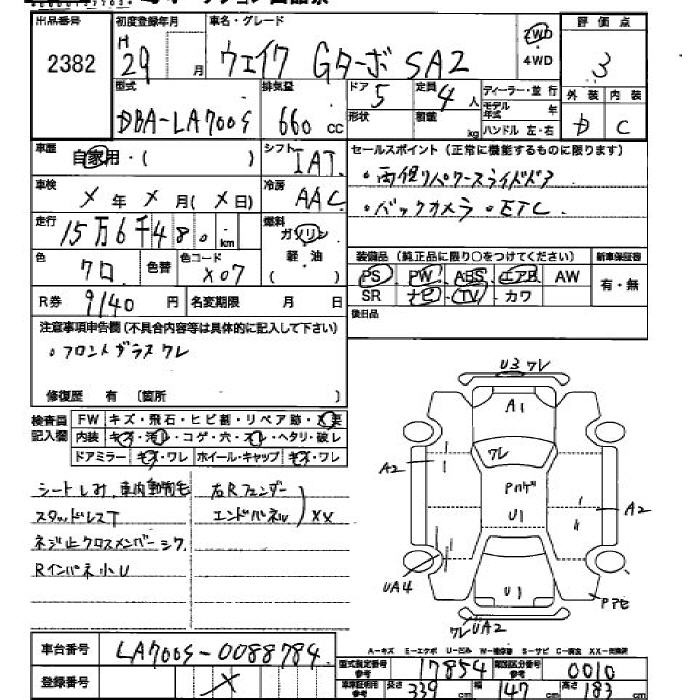 出品番号
初度登録年月
車名・グレード
評価点
2382
H 29 月
ウェイク Gターボ SA2
2WD
4WD
3
型式
排気量
ドア 5
定員 4 人
ディーラー・並行
モデル年式 年
ハンドル 左・右
外装
内装
DBA-LA700S
660 cc
形状
積載 kg
D
C
車歴
自家用・( )
シフト
IAT
セールスポイント (正常に機能するものに限ります)
・両側パワースライドドア
車検
X 年 X 月 ( X 日)
冷房
AAC
・バックカメラ ・ETC
走行
15万6千480 km
燃料
ガソリン
軽油
( )
色
クロ
色替
色コード
X07
装備品 (純正品に限り○をつけてください)
新車保証書
PS PW ABS エアB AW
有・無
SR ナビ TV カワ
R券 9140 円
名変期限 月 日
後日品
注意事項申告欄 (不具合内容等は具体的に記入して下さい)
・フロントガラスワレ
修復歴 有 〔箇所 〕
検査員記入欄
FW キズ・飛石・ヒビ割・リペア跡・
内装 キズ・汚れ・コゲ・穴・スレ・ヘタリ・破レ
ドアミラー キズ・ワレ ホイール・キャップ キズ・ワレ
シートしみ、車内動物毛
スタッドレスT
ネジ止クロスメンバーシワ
Rインパネ小U
右Rフェンダー
エンドパネル
XX
U3ワレ
A1
ワレ
A2
Pハゲ
U1
A2
UA4
U1
ワレUA2
A-キズ E-エクボ U-凹み W-補修跡 S-サビ C-腐食 XX-交換済
車台番号
LA700S-0088784
登録番号
X
型式指定番号 参考
17854
類別区分番号 参考
0010
車庫証明用 参考
長さ 339 cm
幅 147 cm
高さ 183 cm